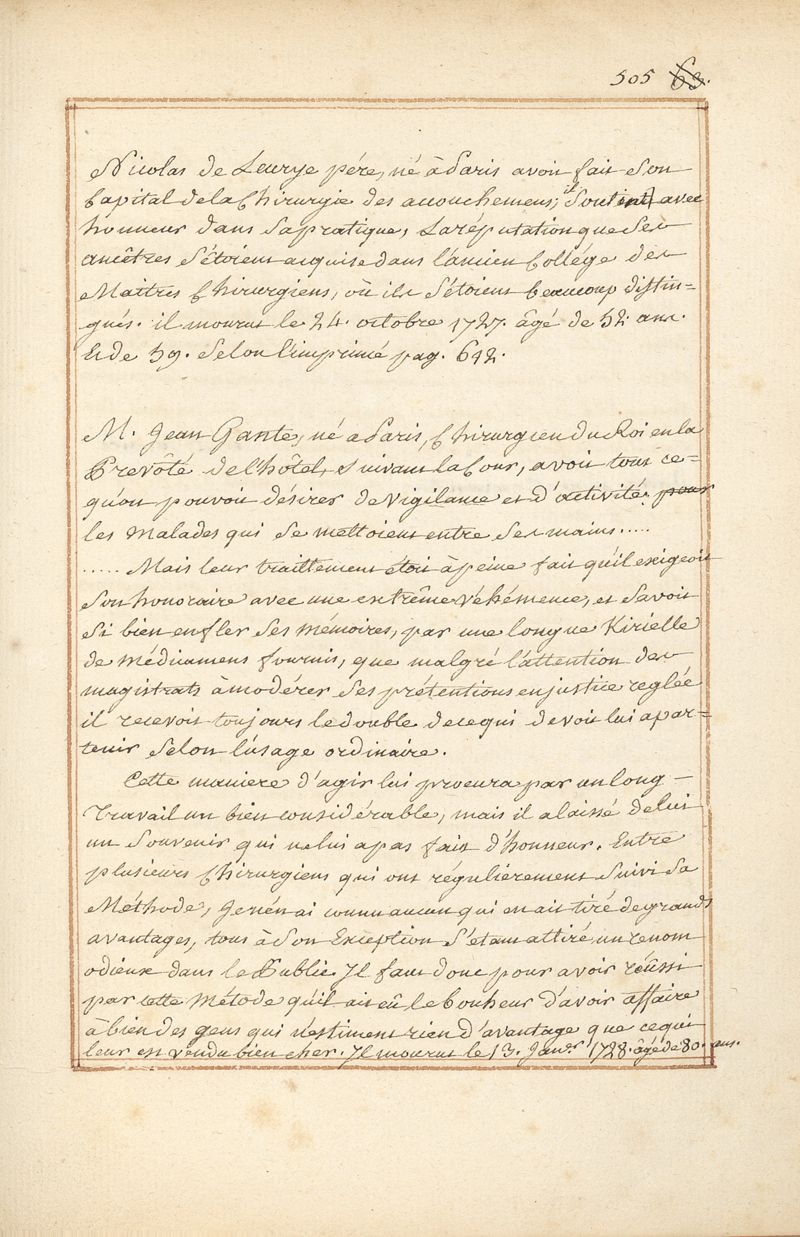 505 63.
Nicolas de Leurye pére, né à Paris avoit fait Son
Capital de la Chirurgie des accouchemens; il Soutint avec
honneur dans Sa pratique, La réputation que Ses
ancêtres S'étoient acquise dans l'ancien Collége des
Maitres Chirurgiens, où ils S'étoient beaucoup distin=
gués. il mourut le 24. octobre 1727. âgé de 52. ans.
Et de 59. Selon l'imprimé pag. 612.
M. Jean Gante, né a Paris, Chirurgien du Roi en la
Prevôté de l'hôtel, Suivant la Cour, avoit tout ce=
qu'on pouvoit désirer de vigilance et d'activité. pour
les Malades qui Se mettoient entre Ses mains.....
..... Mais leur traittement étoit à peine fait qu'il exigeoit
Son honoraire avec une extrême véhémence, et Savoit
Si bien enfler Ses Mémoires, par une longue Kirielle
de Médicamens fournis, que malgré l'attention des
magistrats à modérer Ses prétentions en justice reglée
il recevoit toujours le double de ce qui devoit lui apar=
tenir Selon l'usage ordinaire.
Cette maniere d'agir lui procura par un long –
Travail un bien considérable, mais il a laissé de lui
un Souvenir qui ne lui a pas fait d'honneur. Entre
plusieurs Chirurgiens qui ont réguliérement Suivi Sa
Méthode, Je n'en ai connu aucun qui en ait tiré de grands
avantages, tous à Son Exception S'étant attiré un renom
odieux dans le Public. Il faut donc pour avoir réüssi
par cette Métode qu'il ait eû le bonheur d'avoir affaire
à bien des gens qui n'estiment rien d'avantage que ce qui
leur est vendu bien cher. Il mourut le 13. Janv.r 1728. âgé de 80. ans.